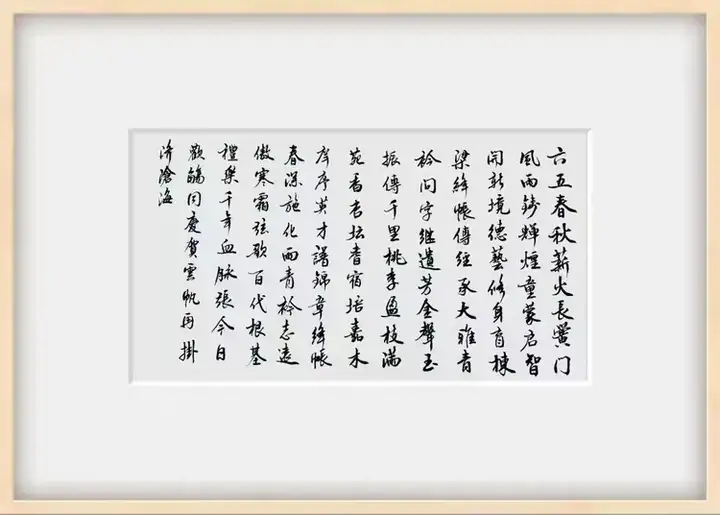 六五春秋薪火長黌门
風雨鑄輝煌童蒙启智
開新境德藝修身育棟
梁絳帳傳經承大雅青
衿问字继遺芳金聲玉
振傳千里桃李盈枝满
苑香杏坛耆宿培嘉木
庠序英才譜錦章絳帳
春深施化雨青衿志遠
傲寒霜弦歌百代根基
禮樂千年血脉張今日
歡觴同慶賀雲帆再掛
济滄海